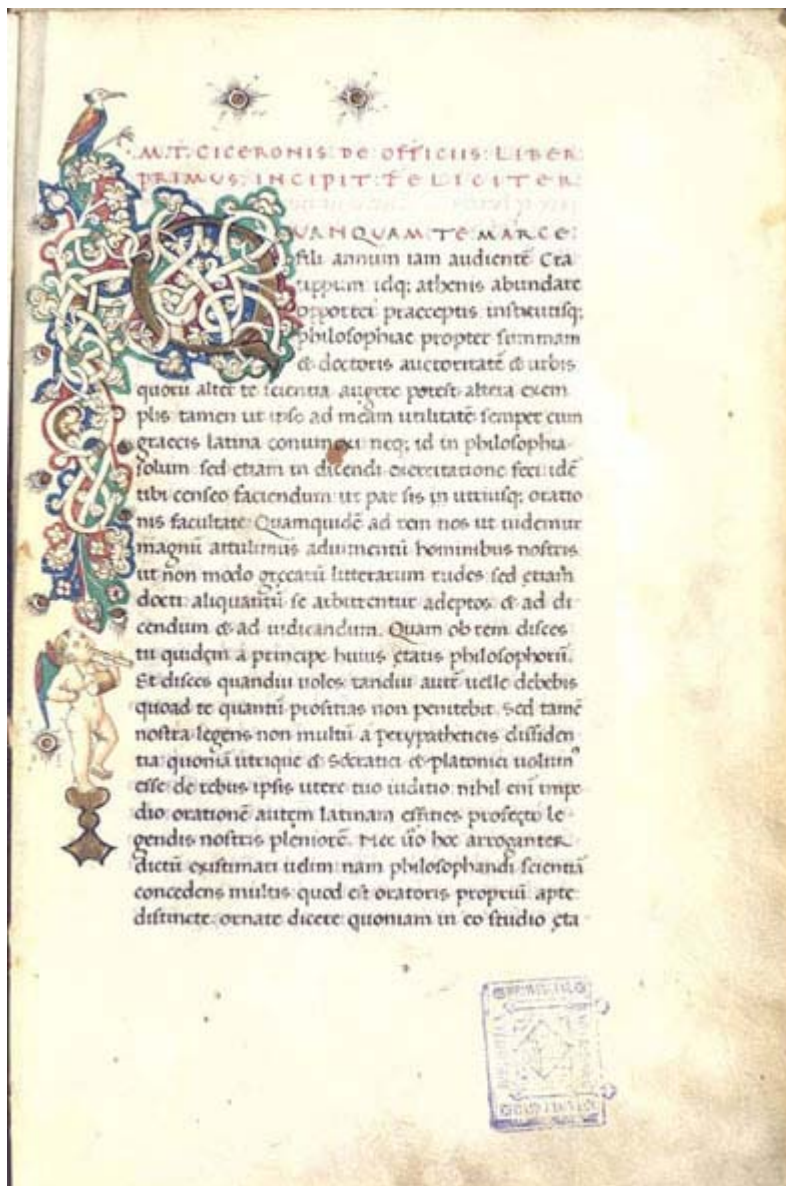 M. T. CICERONIS DE OFFICIIS LIBER
PRIMUS: INCIPIT FELICITER:
QUANQUAM: TE MARCE:
fili annum iam audientē Cra
tippum idq; athenis abundare
oportet praeceptis institutisq;
philosophiae propter summam
& doctoris auctoritatē & urbis
quorū alter te scientia augere potest altera exem
plis tamen ut ipse ad meam utilitatē semper cum
graecis latina coniunxi neq; id in philosophia
solum sed etiam in dicendi exercitatione feci idē
tibi censeo faciendum ut par sis in utriusq; oratio
nis facultate Quamquidē ad rem nos ut uidemur
magnū attulimus adiumentū hominibus nostris
ut non modo gręcarū litterarum rudes sed etiam
docti aliquantū se arbitrentur adeptos & ad di
cendum & ad iudicandum. Quam ob rem disces
tu quidem a principe huius ętatis philosophorū.
Et disces quandiu uoles tandiu autē uelle debebis
quoad te quantū proficias non penitebit. Sed tamē
nostra legens non multū a perypatheticis dissiden
tia quoniā utrique & Socratici & platonici uolum9
esse de rebus ipsis utere tuo iuditio nihil enī impe
dio orationē autem latinam efficies profecto le
gendis nostris pleniorē. Nec ūo hoc arroganter
dictū existimari uelim nam philosophandi scientiā
concedens multis quod est oratoris propriū apte
distincte ornate dicere quoniam in eo studio ęta